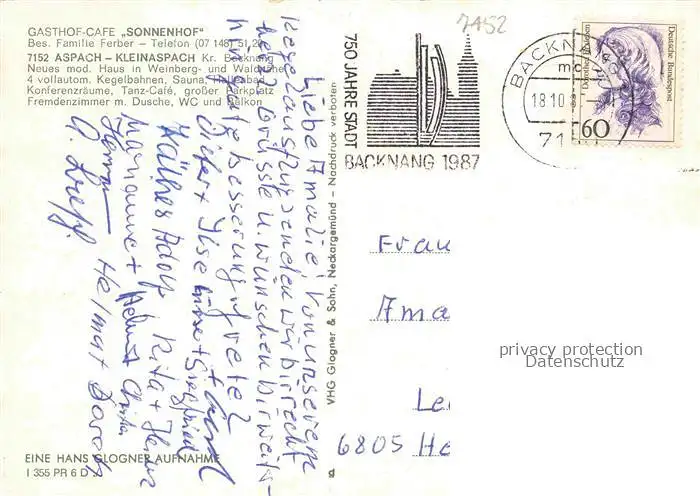 GASTHOF-CAFE „SONNENHOF"
Bes. Familie Ferber – Telefon (07 148) 51 20
7152 ASPACH – KLEINASPACH Kr. Backnang
Neues mod. Haus in Weinberg- und Waldnähe
4 vollautom. Kegelbahnen, Sauna, Hallenbad
Konferenzräume, Tanz-Café, großer Parkplatz
Fremdenzimmer m. Dusche, WC und Balkon
7152
750 JAHRE STADT
BACKNANG 1987
BACKNANG
18.10
71
Deutsche Bundespost
60
Liebe Amalie! Von unserem
Kegelausflug senden wir dir recht
herzl. Grüsse u. wünschen dir weiter-
hin gute Besserung
Dieter + Ilse + Siegfried
Käthe + Adolf Rita + Heinz
Marianne + Helmut
Helmar + Doroth
VHG Glogner & Sohn, Neckargemünd – Nachdruck verboten
Frau
Ama
Le
6805 He
privacy protection
Datenschutz
EINE HANS GLOGNER AUFNAHME
I 355 PR 6 D